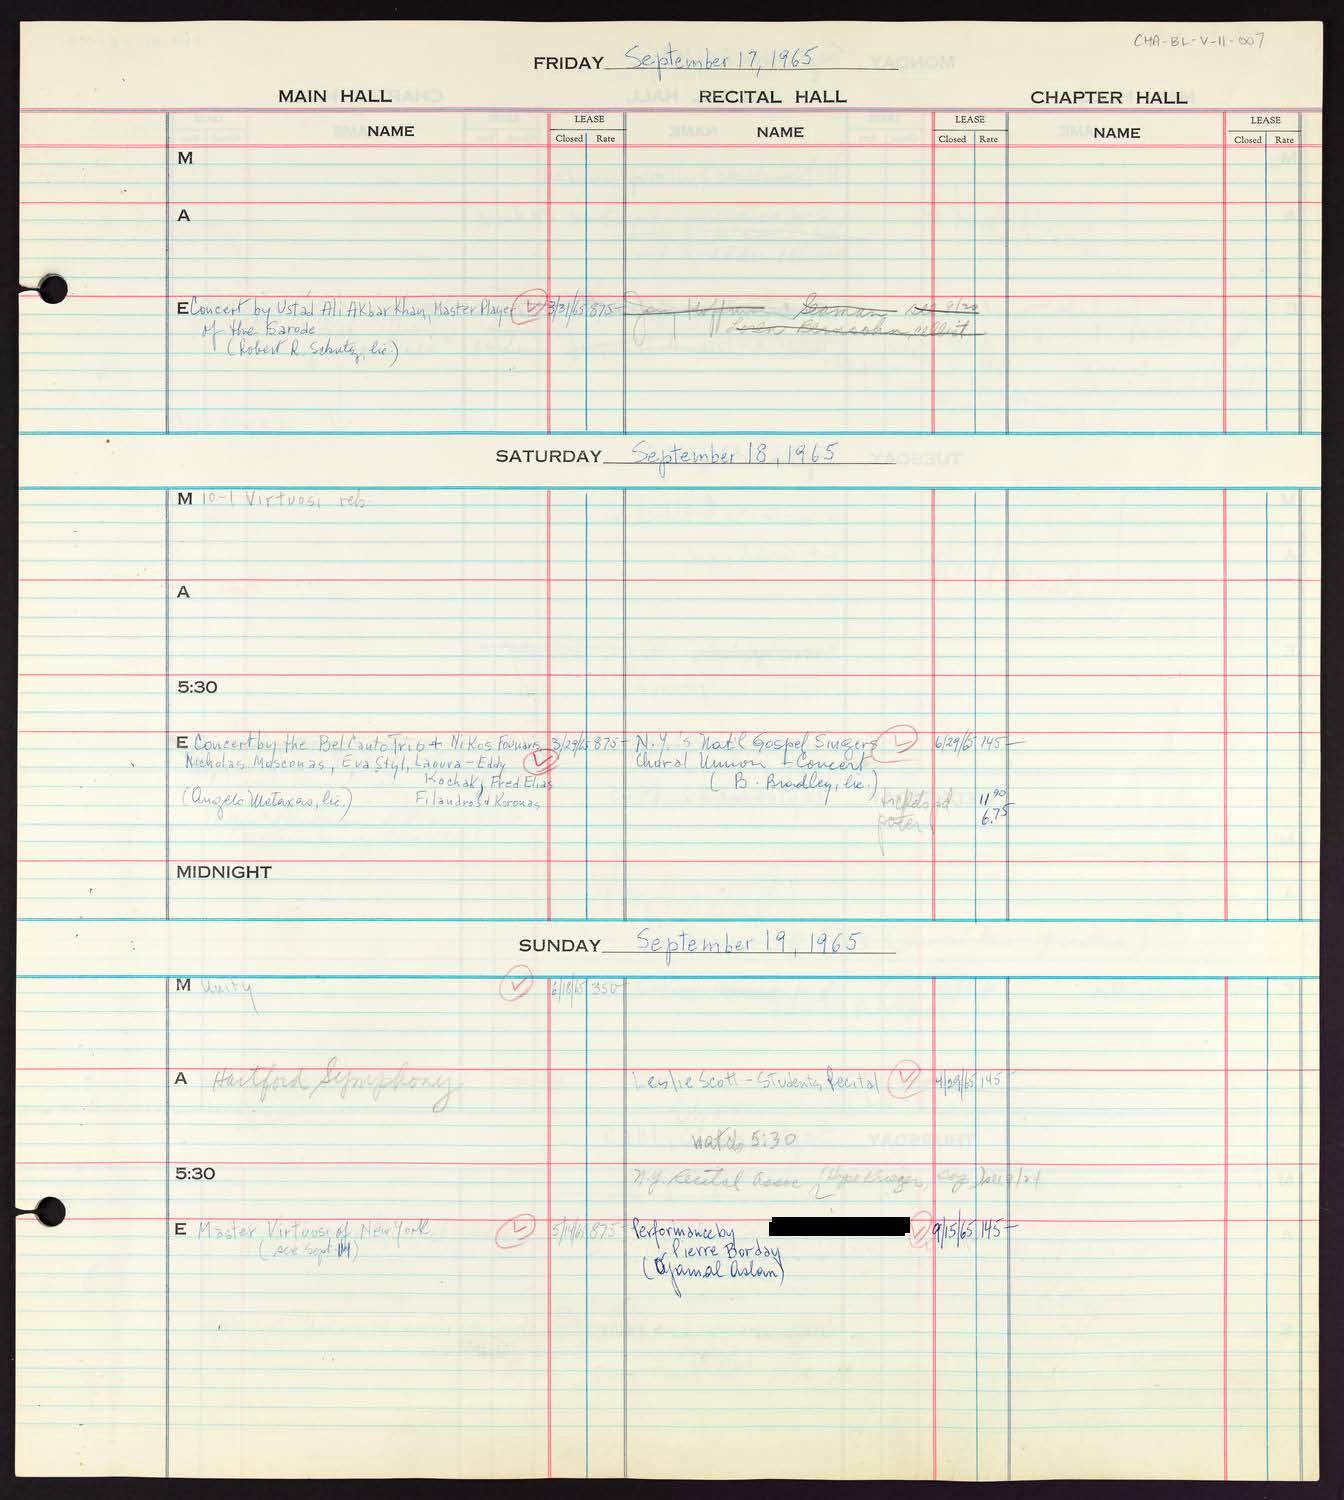 CHA-BL-V-11-007
FRIDAY September 17, 1965
MAIN HALL RECITAL HALL CHAPTER HALL
NAME LEASE NAME LEASE NAME LEASE
Closed Rate Closed Rate Closed Rate
M
A
E Concert by Ustad Ali Akbar Khan, Master Player 3/31/65 875- Seaman see 9/20
of the Sarode cellist
(Robert R. Schutz, lic.)
SATURDAY September 18, 1965
M 10-1 Virtuosi reh
A
5:30
E Concert by the Bel Canto Trio + Nikos 3/29/65 875- N.Y.'s Nat'l Gospel Singers 6/29/65 145-
Nicholas Mosconas, Eva Styl, Laoura-Eddy Choral Union - Concert
Kochak, Fred Elias (B. Bradley, lic.)
(Angelo Metaxas, lic.) Filandros & Koronas tickets pd 11 90
poster 6.75
MIDNIGHT
SUNDAY September 19, 1965
M Unity 6/18/65 350-
A Hartford Symphony Leslie Scott - Students Recital 4/29/65 145-
watch 5:30
5:30 N.Y. Recital Assoc (Hope
E Master Virtuosi of New York 5/14/65 875- Performance by 9/15/65 145-
(see Sept. Pierre Borday
(Djamal Aslan)